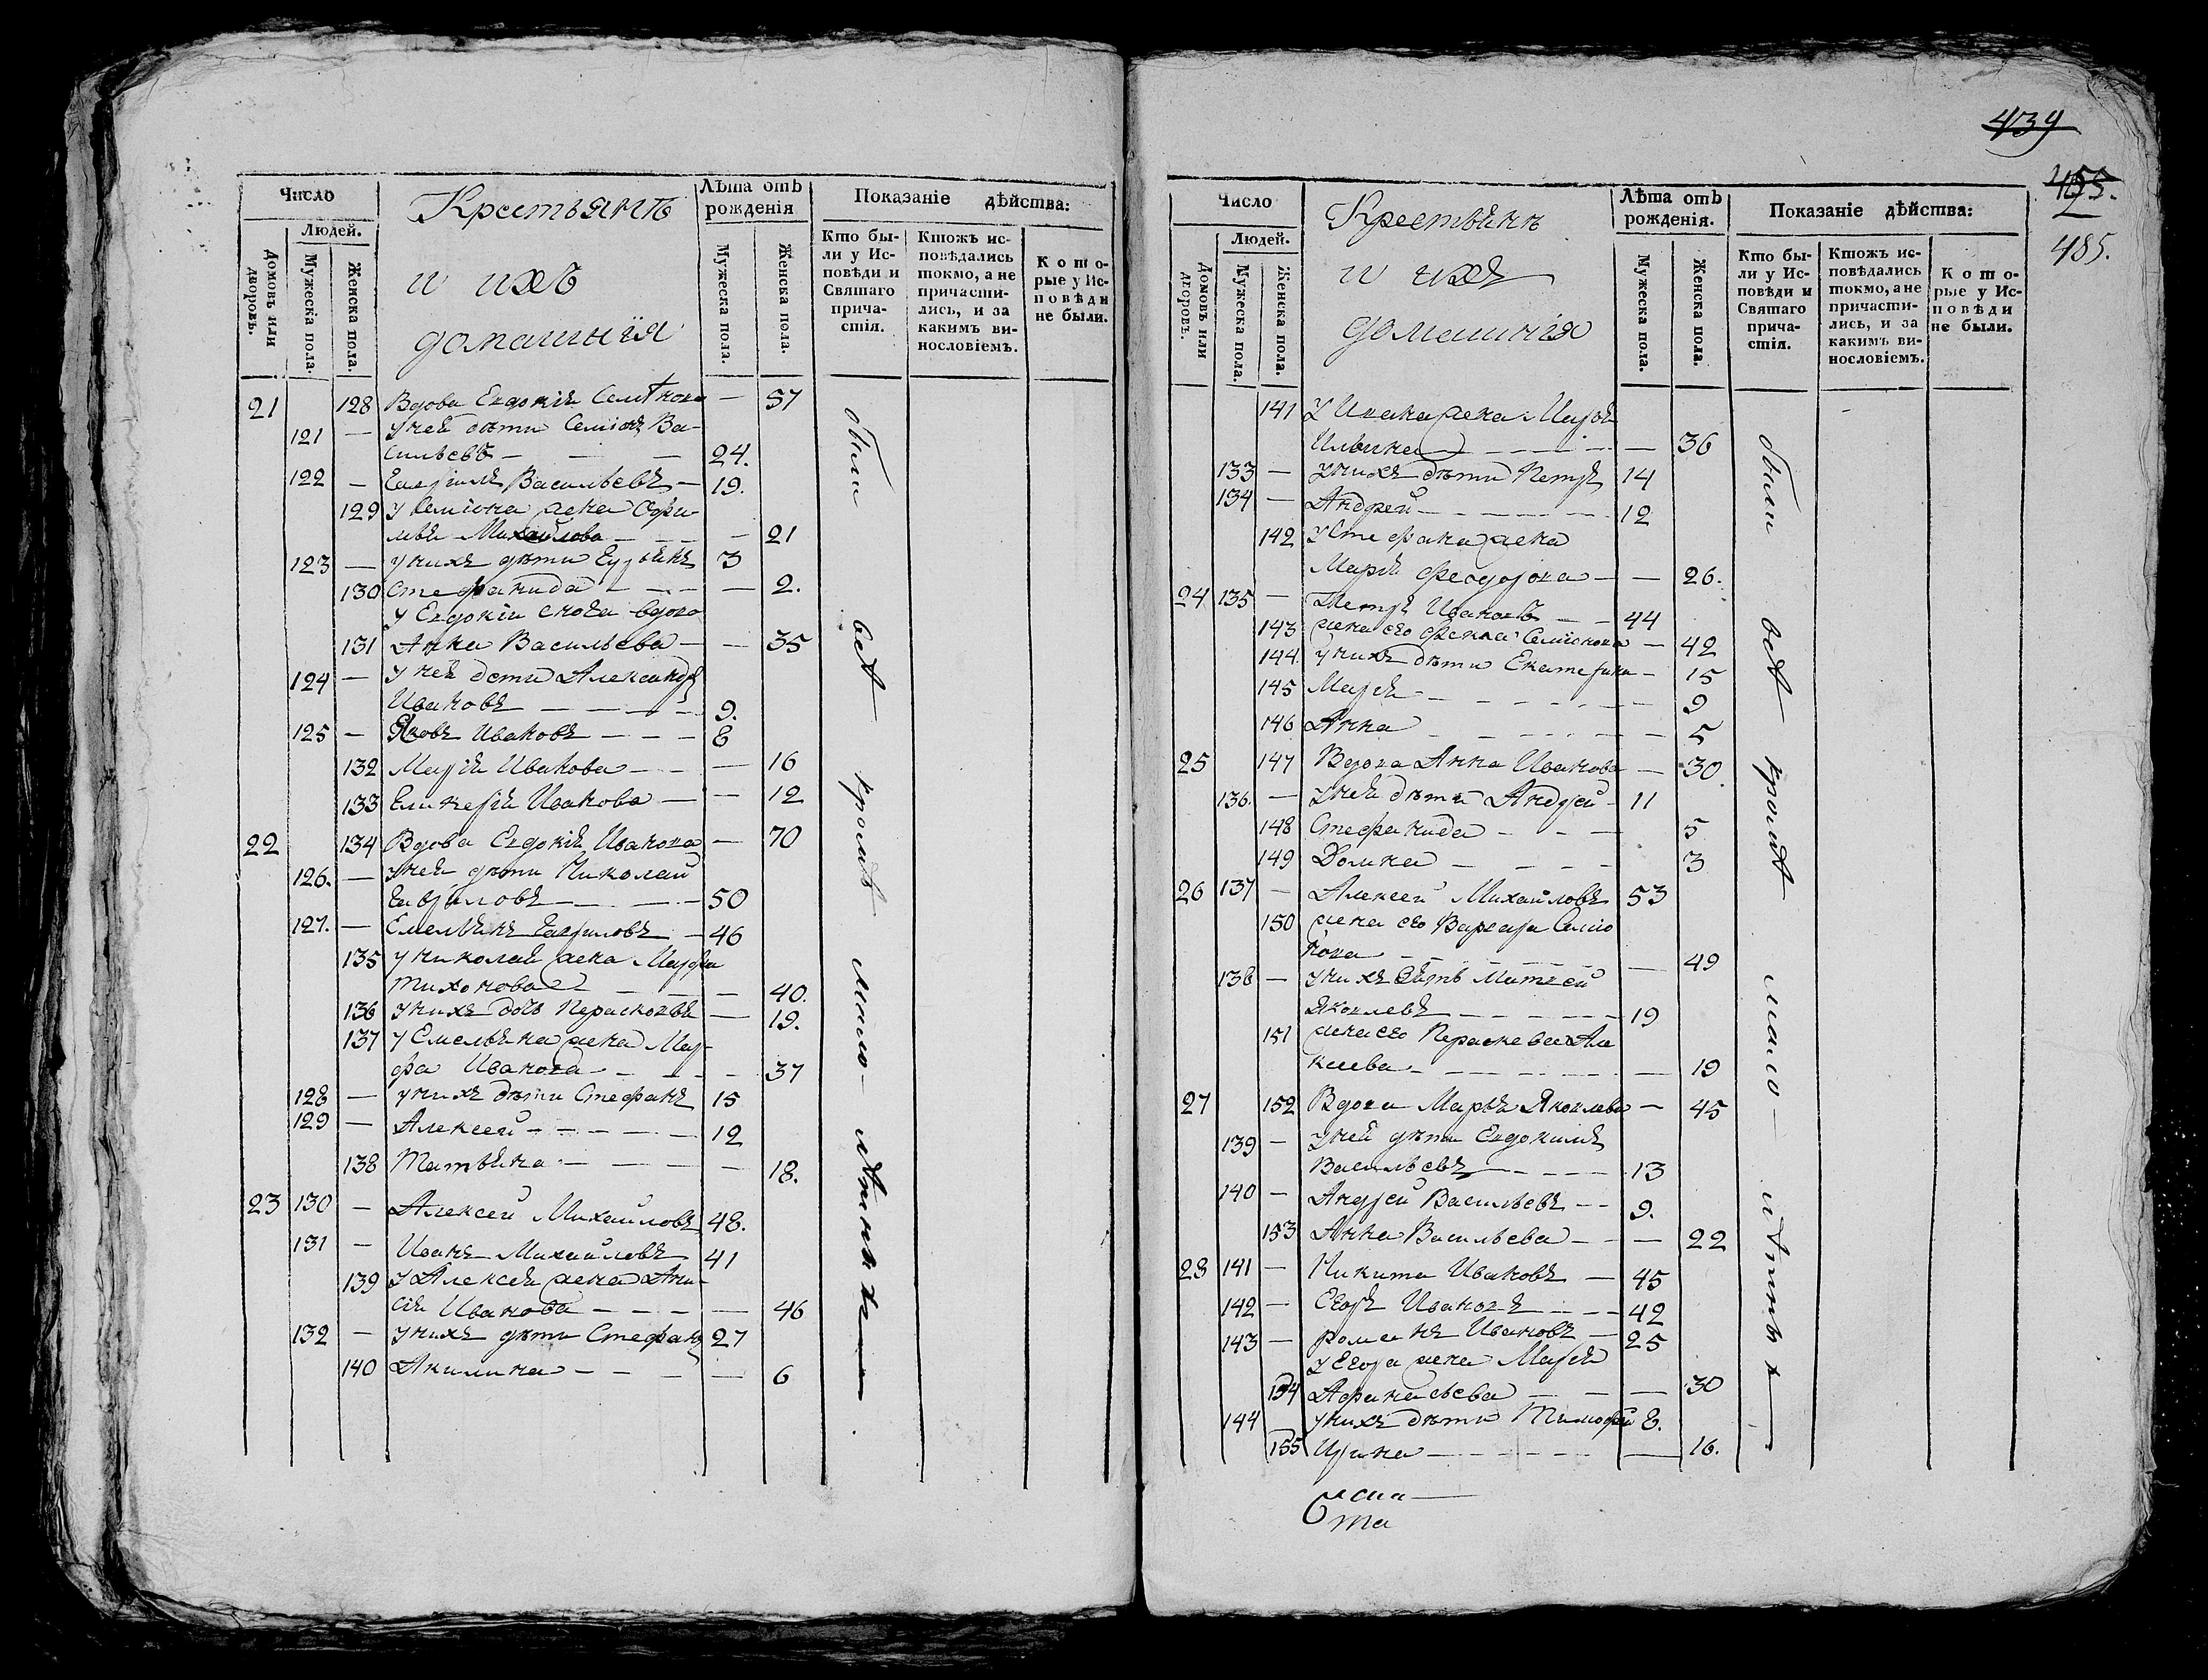 Число
Людей.
Домовъ или дворовъ.
Мужеска пола.
Женска пола.
Крестьянъ
и ихъ
домашнїя
Лѣта отъ рожденія
Мужеска пола.
Женска пола.
Показаніе дѣйства:
Кто бы-
ли у Ис-
повѣди и
Святаго
прича-
стія.
Ктожъ ис-
повѣдались
токмо, а не
причасти-
лись, и за
какимъ ви-
нословіемъ.
Кото-
рые у Ис-
повѣди
не были.
21 128 Вдова Евдокія Семіонова — 57
121 — У ней дѣти Семіонъ Ва-
сильевъ — 24.
122 — Васильевъ — 19.
129 У Семіона жена Офи-
мья Михайлова — 21
123 — У нихъ дѣти 3
130 Стефанида — 2.
У Евдокіи сноха вдова
131 Анна Васильева — 35
124 — У ней дети Александръ
Ивановъ — 9.
125 — Яковъ Ивановъ — 8
132 Марія Иванова — 16
133 Гликерія Иванова — 12
22 134 Вдова Евдокія Иванова — 70
126. — У ней дѣти Николай
Гавриловъ — 50
127. — Емельянъ Гавриловъ — 46
135 У Николая жена Марфа
Тихонова — 40.
136 У нихъ дочь Парасковья — 19.
137 У Емельяна жена Мар-
фа Иванова — 37
128 — У нихъ дѣти Стефанъ 15
129 — Алексей — 12
138 Татьяна — 18.
23 130 — Алексей Михайловъ 48.
131 — Иванъ Михайловъ 41
139 У Алексея жена Ани-
сія Иванова — 46
132 — У нихъ дѣти Стефанъ 27
140 Акилина — 6
были всѣ кромѣ мало-лѣтнихъ
439
455.
485.
Число
Людей.
Домовъ или дворовъ.
Мужеска пола.
Женска пола.
Крестьянъ
и ихъ
домашнія
Лѣта отъ рожденія.
Мужеска пола.
Женска пола.
Показаніе дѣйства:
Кто бы-
ли у Ис-
повѣди и
Святаго
прича-
стія.
Ктожъ ис-
повѣдались
токмо, а не
причасти-
лись, и за
какимъ ви-
нословіемъ.
Кото-
рые у Ис-
повѣди
не были.
141 У Ивана жена Марья
Ильина — 36
133 — У нихъ дѣти Петръ 14
134 — Андрей — 12
142 У Стефана жена
Марія Феодорова — 26.
24 135 — Петръ Ивановъ — 44
143 жена его Фекла Семіонова — 42
144. У нихъ дѣти Екатерина — 15
145 Марія — 9
146 Анна — 5
25 147 Вдова Анна Иванова — 30.
136. — У ней дѣти Андрей — 11
148 Стефанида — 5
149 Домна — 3
26 137 — Алексей Михайловъ 53
150 жена его Варвара Семіо
нова — 49
138 — У нихъ зять Матвей
Яковлевъ — 19
151 жена его Параскевия Але
ксеева — 19
27 152 Вдова Марья Яковлева — 45
139 — У ней дѣти Евдокимъ
Васильевъ — 13
140 — Андрей Васильевъ — 9.
153 Анна Васильева — 22
28 141 — Никита Ивановъ — 45
142 — Егоръ Ивановъ — 42
143 — Романъ Ивановъ — 25
У Егора жена Марія
154 Афанасьева — 30
144 — У нихъ дѣти Тимофей 8.
155 Ирина — 16.
были всѣ кромѣ мало-лѣтнихъ